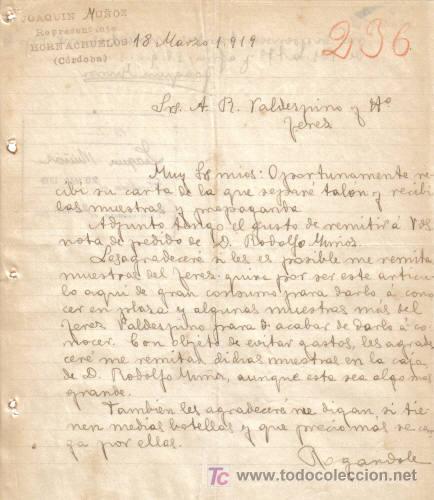 JOAQUIN MUÑOZ
Representante
HORNACHUELOS
(Córdoba)
18 Marzo 1,919
236
Srs. A. R. Valdespino y Hº
Jerez
Muy Srs mios: Oportunamente re-
cibi su carta de la que separé talon y recibi
las muestras y propaganda
Adjunto tengo el gusto de remitir á Vds
nota de pedido de D. Rodolfo Muñoz.
Les agradeceré si les es posible me remitan
muestras del Jerez-quina por ser este articu-
lo aqui de gran consumo para darlo á cono-
cer en plaza y algunas muestras mas del
Jerez Valdespino para acabar de darlo á co-
nocer. Con objeto de evitar gastos, les agrade-
ceré me remitan dichas muestras en la caja
de D. Rodolfo Muñoz, aunque esta sea algo mas
grande.
Tambien les agradeceré me digan, si tie-
nen medias botellas y que precio mas se car-
ga por ellas.
Rogandole
TC
todocoleccion
www.todocoleccion.net